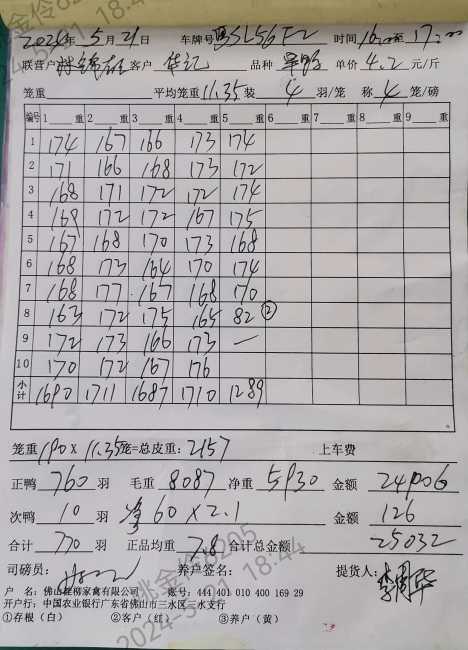 2024年 5月 21日 车牌号 时间 16:00至 17:00
联营户 客户 华记 品种 单价 4.2 元/斤
笼重 平均笼重 11.35 装 4 羽/笼 称 4 笼/磅
编号 1 重 2 重 3 重 4 重 5 重 6 重 7 重 8 重 9 重
1 174 167 166 173 174
2 171 166 168 173 172
3 168 171 172 172 174
4 169 172 172 167 175
5 167 168 170 173 168
6 168 173 164 170 174
7 168 177 167 168 170
8 163 172 175 165 82 ②
9 172 173 166 173 —
10 170 172 167 176
小计 1690 1711 1687 1710 1289
笼重 190 X 11.35 笼=总皮重: 2157 上车费
正鸭 760 羽 毛重 8087 净重 5930 金额 24906
次鸭 10 羽 净 60 X 2.1 金额 126
合计 770 羽 正品均重 7.8 合计总金额 25032
司磅员: 养户签名: 提货人:
户 名: 佛山 家禽有限公司 账号: 444 401 010 400 169 29
开户行: 中国农业银行广东省佛山市三水区三水支行
①存根（白） ②客户（红） ③养户（黄）